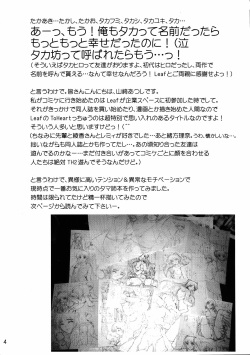 たかあき…たかし。たかお、タカフミ、タカシ、タカユキ、タカ…
あーっ、もう！俺もタカって名前だったら
もっともっと幸せだったのに！（泣
タカ坊って呼ばれたらもう…っ！
（そういえばタカヒロって友達がおりますよ。初代はヒロだっし、両作で
名前を呼んで貰える…なんて幸せなんだろう！Leafとご両親に感謝せよっ！）
と言うわけで。皆さんこんにちは、山崎あつしです。
私がコミケに行き始めたのはLeafが企業スペースに初参加した時でして。
それがきっかけで同人誌を買い始めたり、漫画とか描き始めた人間なので
LeafのToHeartっちゅうのは超特別で思い入れのあるタイトルなのですっ！
そういう人多いと思いますけど！（
（ちなみに先輩と綾香さんとレミィが大好きでした…あと緒方理奈。うわ、懐かしいな…
拙いながらも同人誌とかも作ってたし…。あの頃知り合った友達
遊んでるのかなー…まだ付き合いがあってコミケごとに顔を合わせる
人たちは絶対TH2遊んでそうなんだけど）
と言うわけで、異様に高いテンション&異常なモチベーションで
現時点で一番お気に入りのタマ姉本を作ってみました。
時間は限られてたけど精一杯描いてみたので
次ページから読んでみて下さい…。
4